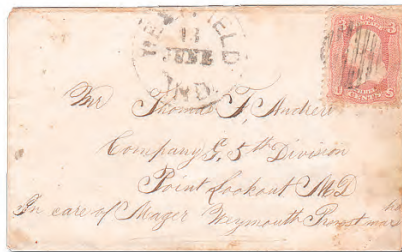 FIELD
13
JUNE
IND.
3 3
CENTS
Mr Thomas F. Andrew
Company G. 5th Division
Point Lookout MD
In care of Mager Weymouth Provost mar